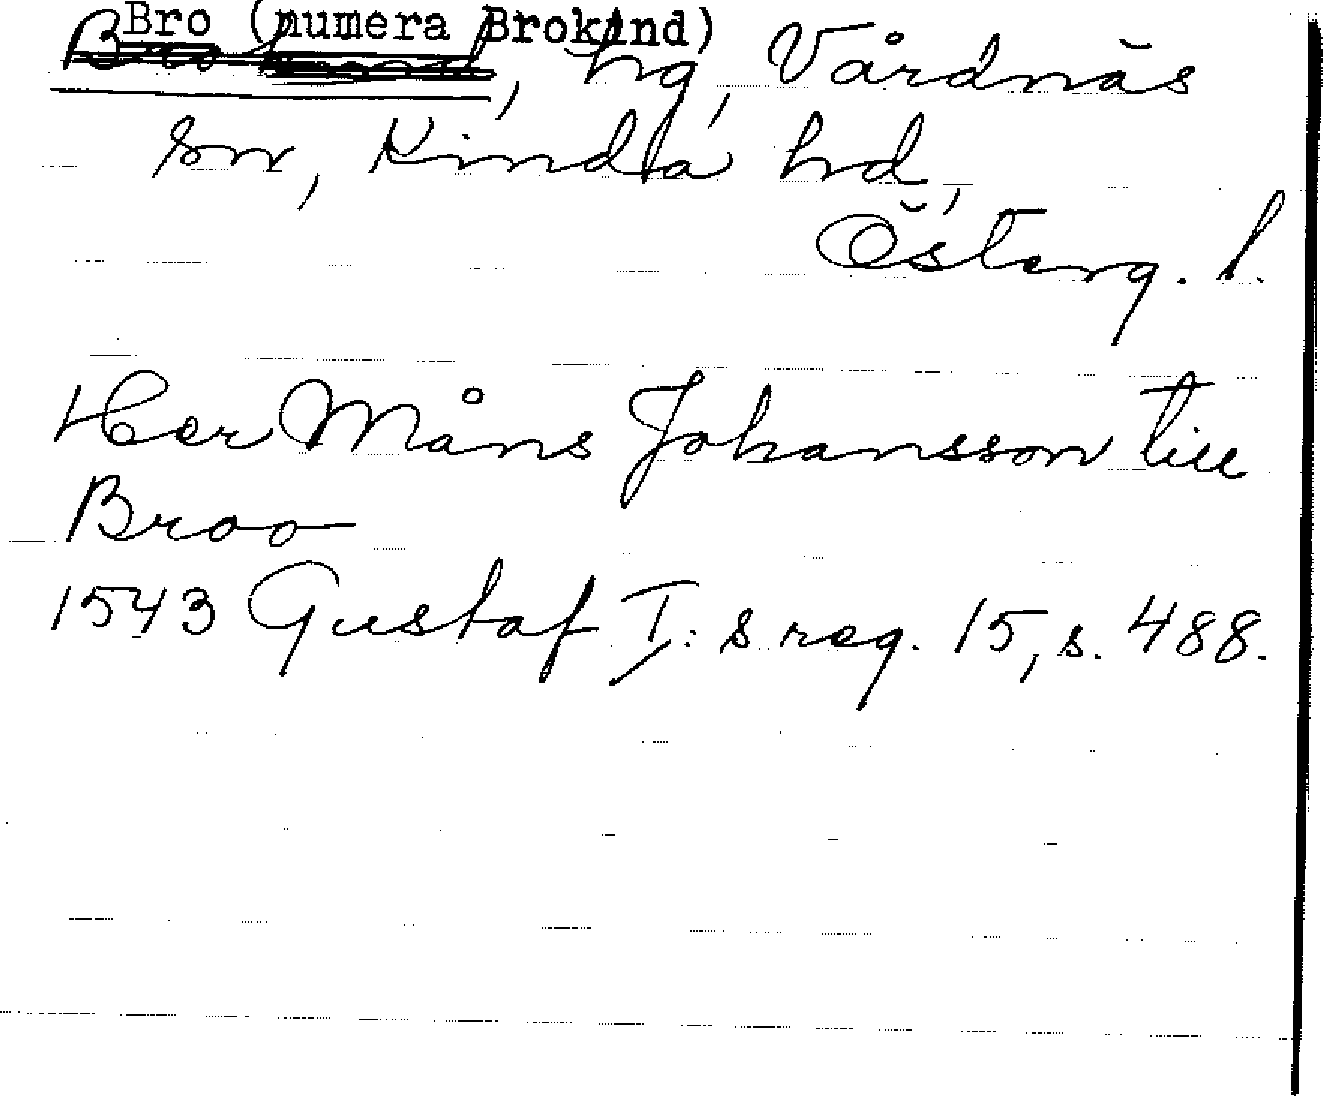 Bro (numera Brokind)
hg, Vårdnäs
sn, Kinda hd,
Österg. l.
Her Måns Johansson till
Broo
1543 Gustaf I:s reg. 15, s. 488.